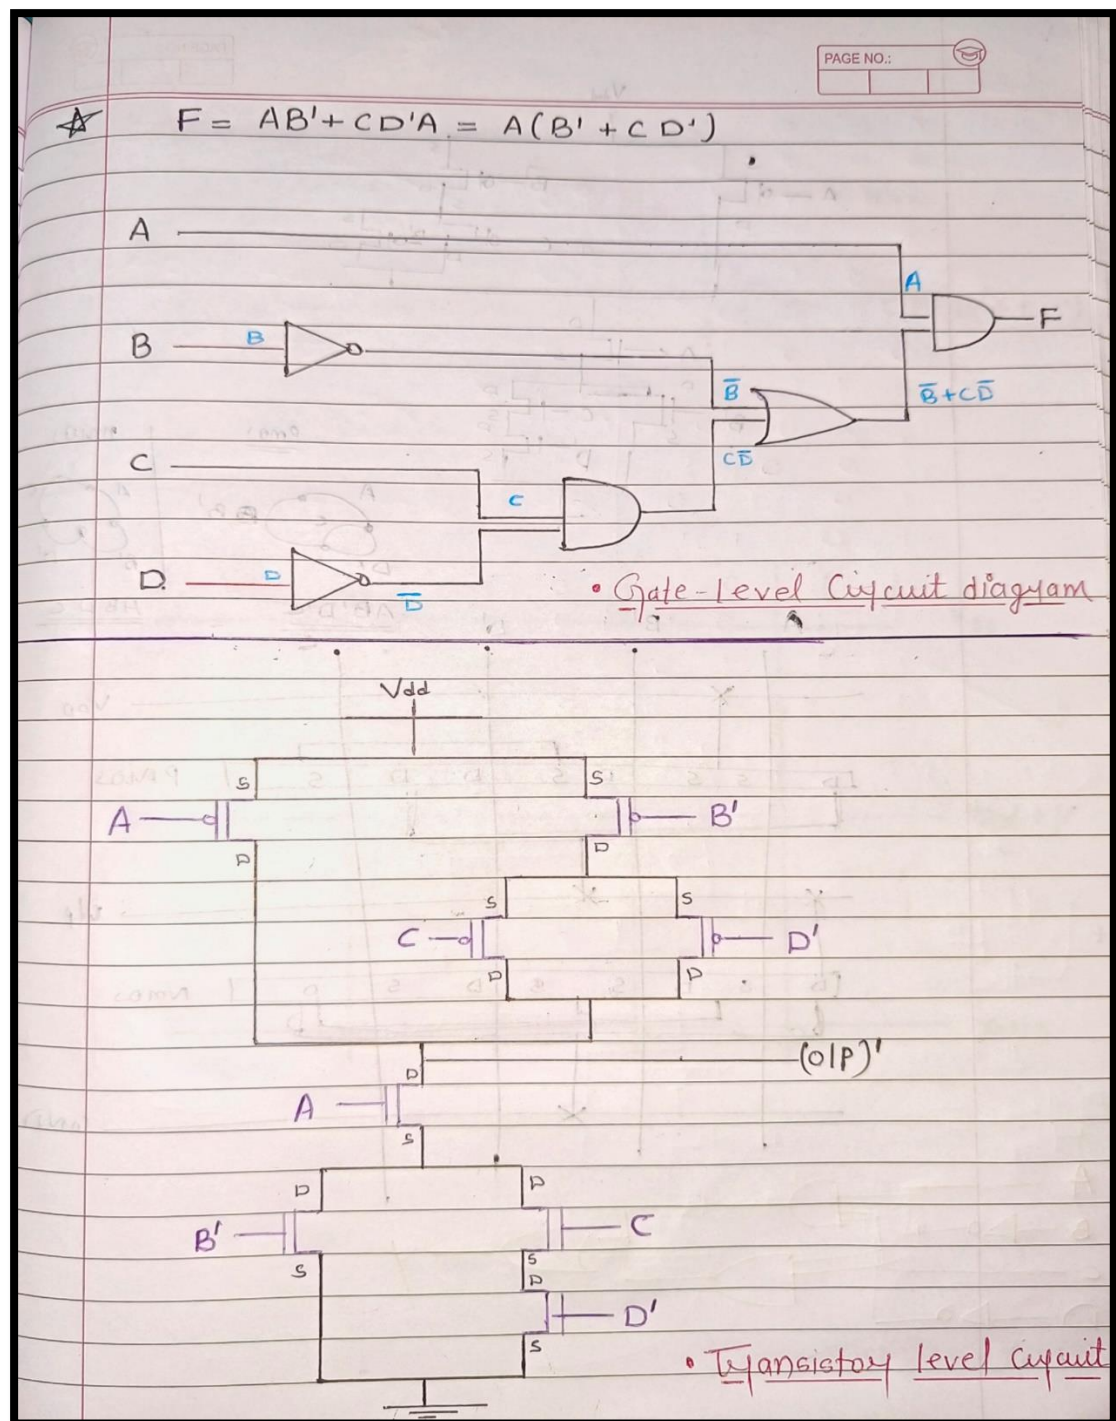 PAGE NO.:
F = AB' + CD'A = A(B' + CD')
A
A
F
B
B
B̅
B̅+CD̅
C
CD̅
C
D
D
D̅
• Gate-level Circuit diagram
Vdd
S
S
A
B'
D
D
S
S
C
D'
D
D
(O/P)'
D
A
S
D
D
B'
C
S
S
D
D'
S
• Transistor level circuit